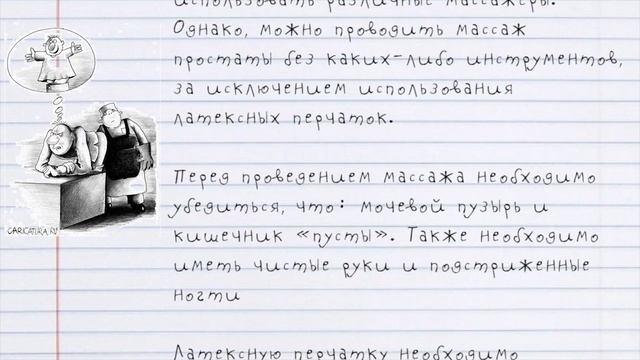 использовать различные массажеры.
Однако, можно проводить массаж
простаты без каких-либо инструментов,
за исключением использования
латексных перчаток.
Перед проведением массажа необходимо
убедиться, что: мочевой пузырь и
кишечник «пусты». Также необходимо
иметь чистые руки и подстриженные
ногти
Латексную перчатку необходимо
CARICATURA.RU